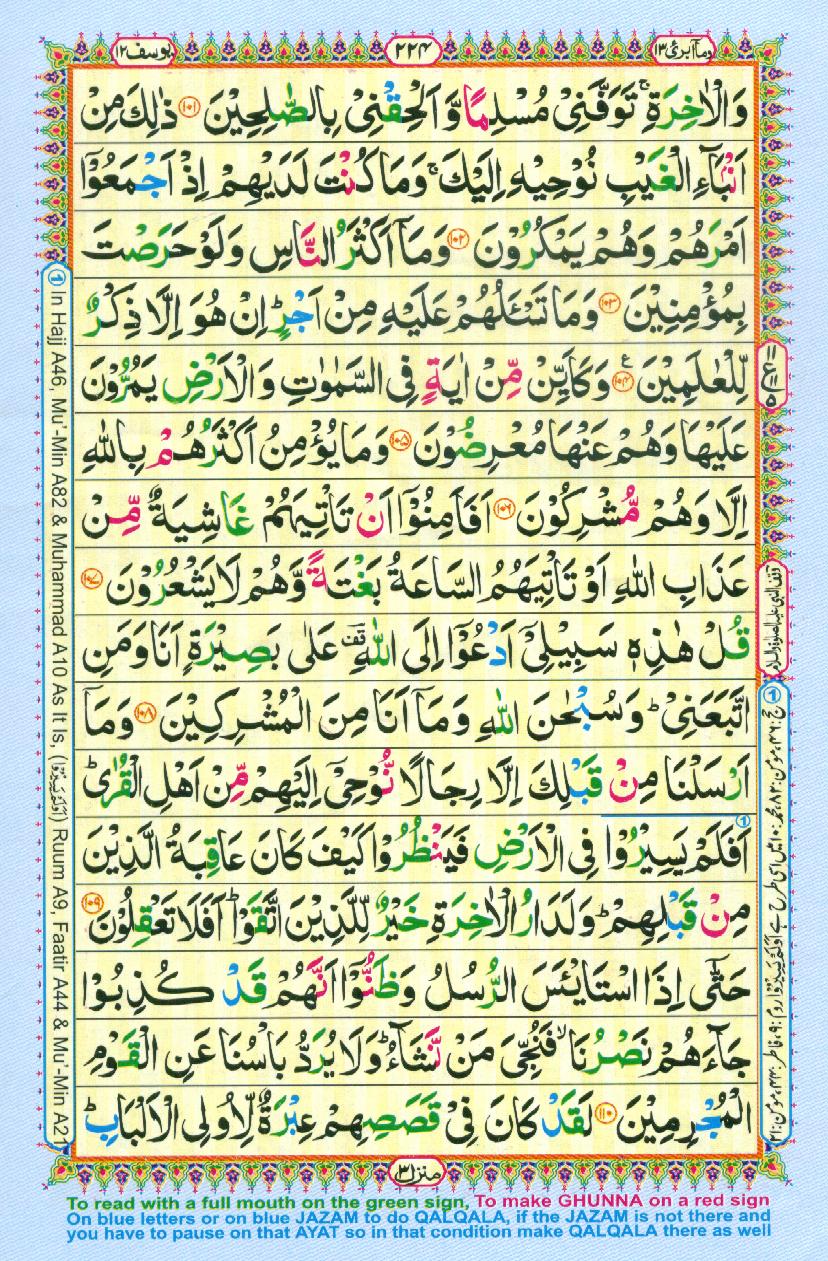 وما أبرئ ١٣
٢٢٤
يوسف ١٢
وَالْاٰخِرَةِ ۚ تَوَفَّنِیْ مُسْلِمًا وَّ اَلْحِقْنِیْ بِالصّٰلِحِیْنَ ﴿۱۰۱﴾ ذٰلِكَ مِنْ
اَنْۢبَآءِ الْغَیْبِ نُوْحِیْهِ اِلَیْكَ ۚ وَمَا كُنْتَ لَدَیْهِمْ اِذْ اَجْمَعُوْۤا
اَمْرَهُمْ وَهُمْ یَمْكُرُوْنَ ﴿۱۰۲﴾ وَمَاۤ اَكْثَرُ النَّاسِ وَلَوْ حَرَصْتَ
بِمُؤْمِنِیْنَ ﴿۱۰۳﴾ وَمَا تَسْـَٔلُهُمْ عَلَیْهِ مِنْ اَجْرٍ ؕ اِنْ هُوَ اِلَّا ذِكْرٌ
لِّلْعٰلَمِیْنَ ﴿۱۰۴﴾ ع وَكَاَیِّنْ مِّنْ اٰیَةٍ فِی السَّمٰوٰتِ وَالْاَرْضِ یَمُرُّوْنَ
عَلَیْهَا وَهُمْ عَنْهَا مُعْرِضُوْنَ ﴿۱۰۵﴾ وَمَا یُؤْمِنُ اَكْثَرُهُمْ بِاللّٰهِ
اِلَّا وَهُمْ مُّشْرِكُوْنَ ﴿۱۰۶﴾ اَفَاَمِنُوْۤا اَنْ تَاْتِیَهُمْ غَاشِیَةٌ مِّنْ
عَذَابِ اللّٰهِ اَوْ تَاْتِیَهُمُ السَّاعَةُ بَغْتَةً وَّهُمْ لَا یَشْعُرُوْنَ ﴿۱۰۷﴾
قُلْ هٰذِهٖ سَبِیْلِیْۤ اَدْعُوْۤا اِلَی اللّٰهِ ؔ قف عَلٰی بَصِیْرَةٍ اَنَا وَمَنِ
اتَّبَعَنِیْ ؕ وَسُبْحٰنَ اللّٰهِ وَمَاۤ اَنَا مِنَ الْمُشْرِكِیْنَ ﴿۱۰۸﴾ وَمَاۤ
اَرْسَلْنَا مِنْ قَبْلِكَ اِلَّا رِجَالًا نُّوْحِیْۤ اِلَیْهِمْ مِّنْ اَهْلِ الْقُرٰی ؕ
اَفَلَمْ یَسِیْرُوْا فِی الْاَرْضِ فَیَنْظُرُوْا كَیْفَ كَانَ عَاقِبَةُ الَّذِیْنَ
مِنْ قَبْلِهِمْ ؕ وَلَدَارُ الْاٰخِرَةِ خَیْرٌ لِّلَّذِیْنَ اتَّقَوْا ؕ اَفَلَا تَعْقِلُوْنَ ﴿۱۰۹﴾
حَتّٰۤی اِذَا اسْتَایْـَٔسَ الرُّسُلُ وَظَنُّوْۤا اَنَّهُمْ قَدْ كُذِبُوْا
جَآءَهُمْ نَصْرُنَا ۙ فَنُجِّیَ مَنْ نَّشَآءُ ؕ وَلَا یُرَدُّ بَاْسُنَا عَنِ الْقَوْمِ
الْمُجْرِمِیْنَ ﴿۱۱۰﴾ لَقَدْ كَانَ فِیْ قَصَصِهِمْ عِبْرَةٌ لِّاُولِی الْاَلْبَابِ ؕ
① In Hajj A46, Mu'-Min A82 & Muhammad A10 As It Is, (اَوَلَمْ یَسِیْرُوْا) Ruum A9, Faatir A44 & Mu'-Min A21
منزل ٣
To read with a full mouth on the green sign, To make GHUNNA on a red sign
On blue letters or on blue JAZAM to do QALQALA, if the JAZAM is not there and
you have to pause on that AYAT so in that condition make QALQALA there as well